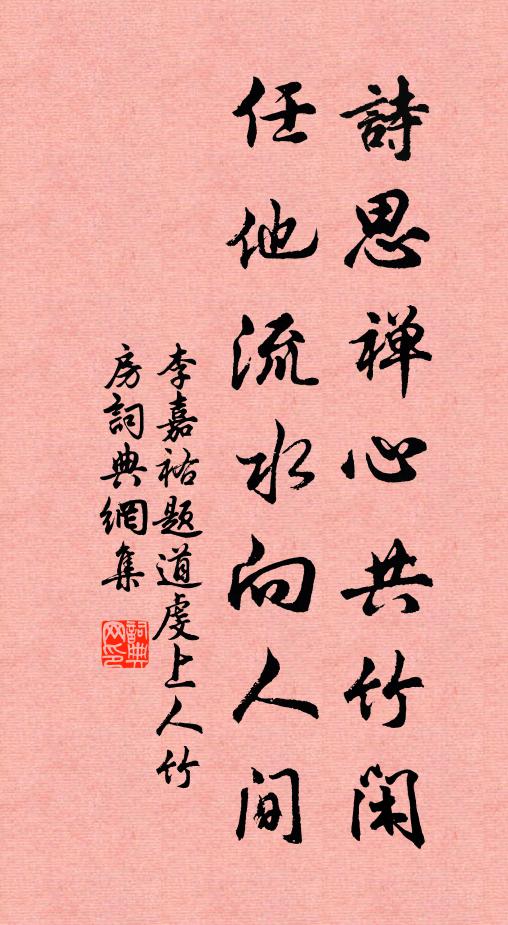 詩思禅心共竹闲
任他流水向人间
李嘉祐题道虔上人竹
房詞典網集
詞典网印